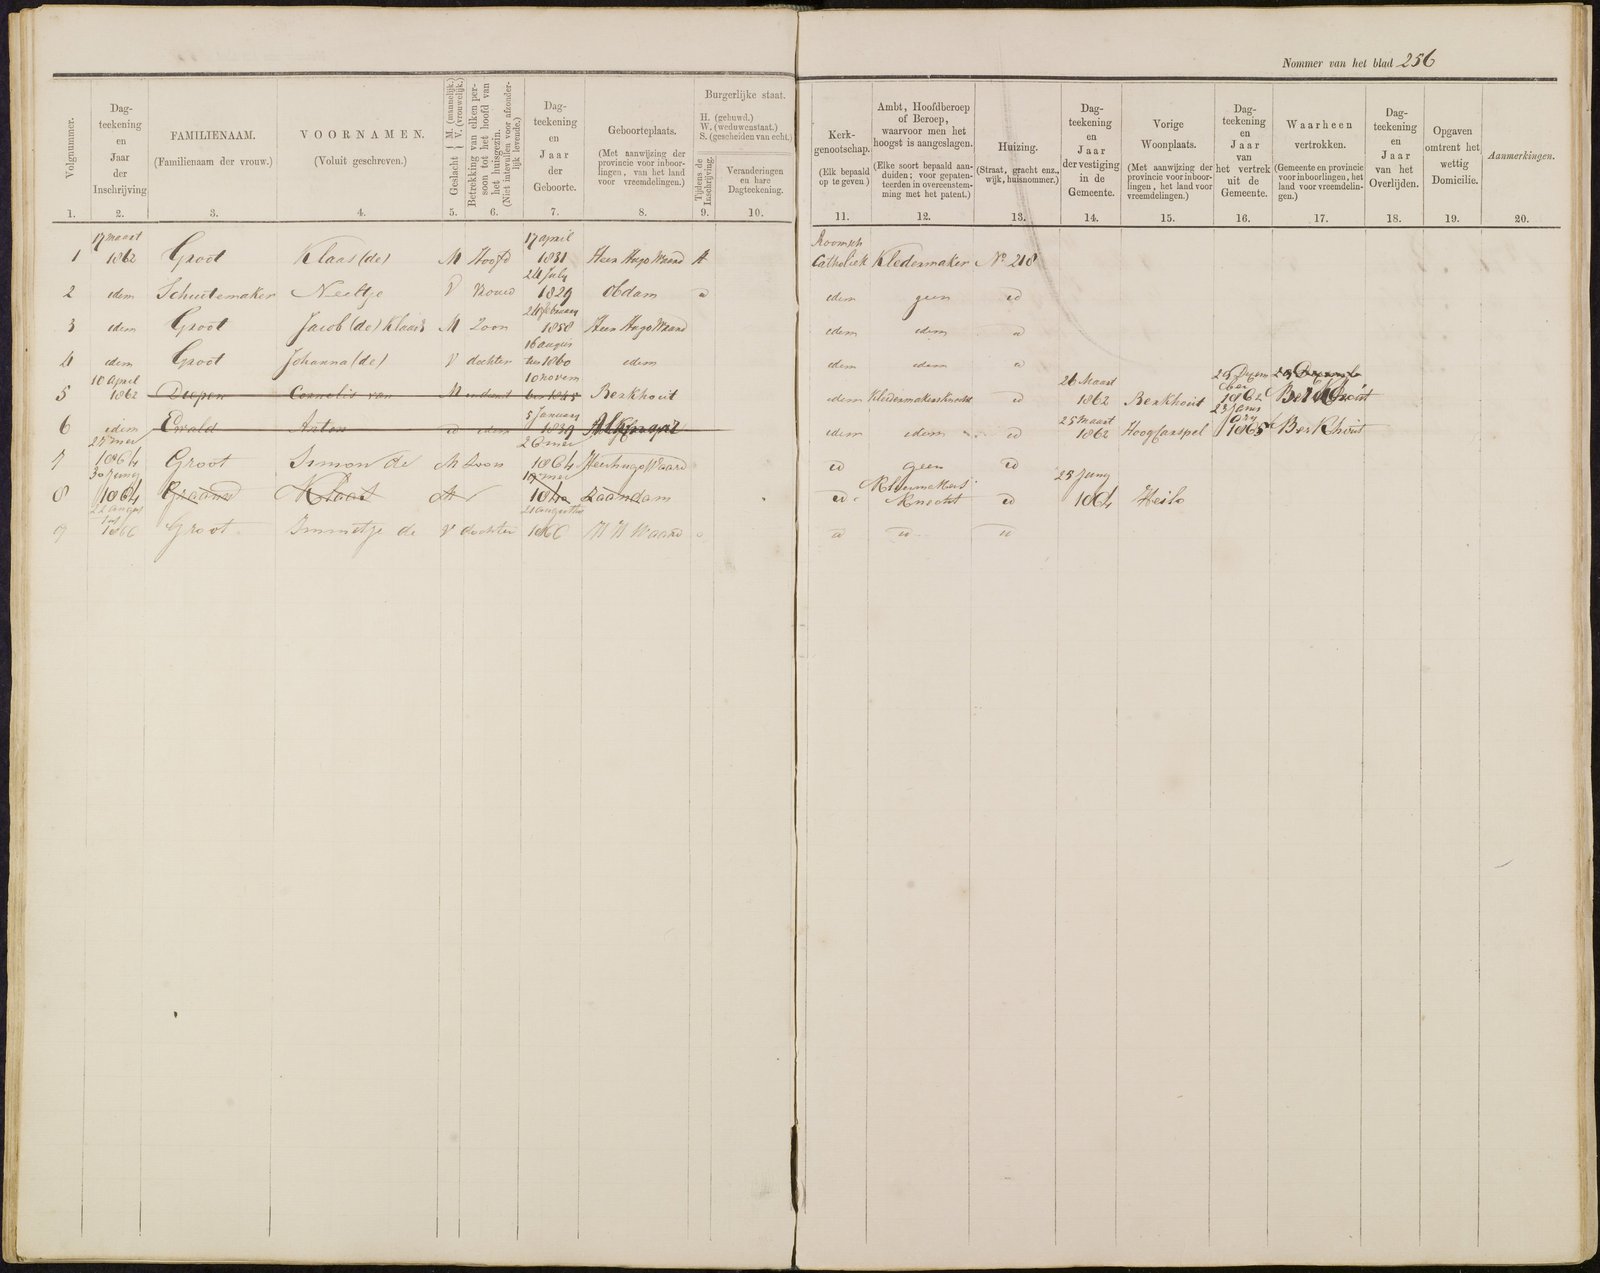 Nommer van het blad 256
Volgnummer. Dagteekening en Jaar der Inschrijving FAMILIENAAM. (Familienaam der vrouw.) VOORNAMEN. (Voluit geschreven.) Geslacht { M. (mannelijk.) V. (vrouwelijk.) Betrekking van elken persoon tot het hoofd van het huisgezin. (Niet intevullen voor afzonderlijk levende.) Dagteekening en Jaar der Geboorte. Geboorteplaats. (Met aanwijzing der provincie voor inboorlingen, van het land voor vreemdelingen.) Burgerlijke staat. H. (gehuwd.) W. (weduwenstaat.) S. (gescheiden van echt.) Tijdens de Inschrijving. Veranderingen en hare Dagteekening.
Kerkgenootschap. (Elk bepaald op te geven) Ambt, Hoofdberoep of Beroep, waarvoor men het hoogst is aangeslagen. (Elke soort bepaald aanduiden; voor gepatenteerden in overeenstemming met het patent.) Huizing. (Straat, gracht enz., wijk, huisnommer.) Dagteekening en Jaar der vestiging in de Gemeente. Vorige Woonplaats. (Met aanwijzing der provincie voor inboorlingen, het land voor vreemdelingen.) Dagteekening en Jaar van het vertrek uit de Gemeente. Waarheen vertrokken. (Gemeente en provincie voor inboorlingen, het land voor vreemdelingen.) Dagteekening en Jaar van het Overlijden. Opgaven omtrent het wettig Domicilie. Aanmerkingen.
1. 2. 3. 4. 5. 6. 7. 8. 9. 10. 11. 12. 13. 14. 15. 16. 17. 18. 19. 20.
1 17 maart 1862 Groot Klaas (de) M Hoofd 17 april 1831 Heer Hugo Waard H Roomsch Catholiek Kledermaker No 218
2 edem Schuitemaker Neeltje V Vrouw 24 July 1829 Obdam edem geen
3 edem Groot Jacob (de) Klaas M Zoon 1858 Heer Hugo Waard edem edem
4 edem Groot Johanna (de) V dochter 16 augustus 1860 edem edem edem
5 10 April 1862 Diepen Cornelis van M 10 november 1845 Berkhout edem Kledermakersknecht 26 Maart 1862 Berkhout 1862 Berkhout
6 edem Ewald Anton edem 5 January 1839 Alkmaar edem edem 25 maart 1862 Hoogcarspel 23 January 1865 Berkhout
7 1864 Groot Simon de M Zoon 26 mei 1864 Heerhugo Waard geen
8 30 Juny 1864 Klaas M Zaandam Knecht 25 Juny 1864 Heilo
9 22 augustus 1866 Groot Immetje de V dochter 21 augustus 1866 H H Waard